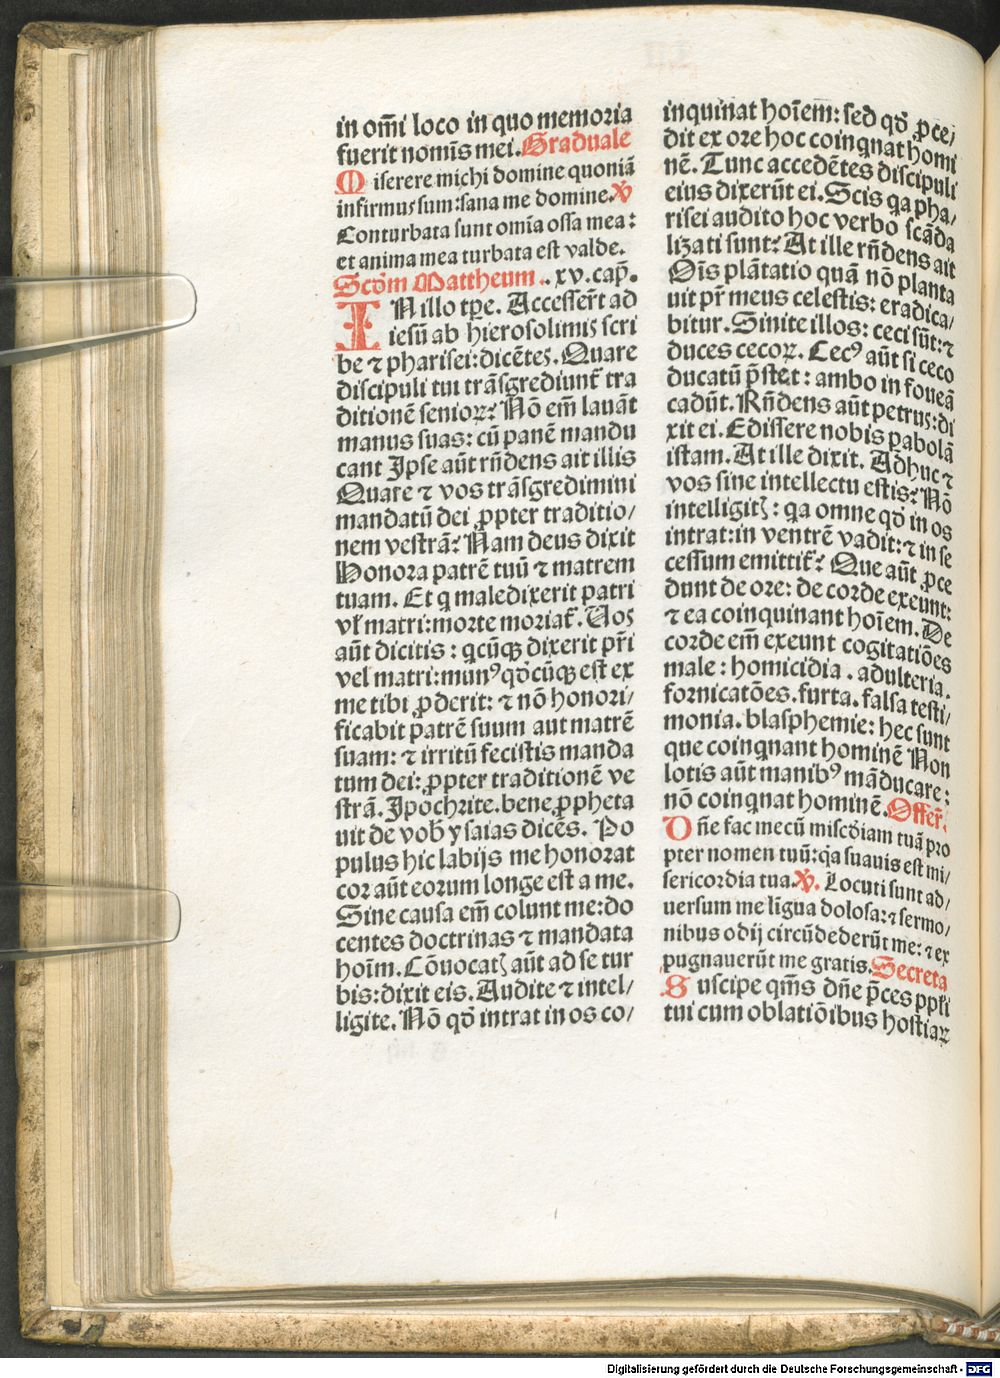 in om̄i loco in quo memoria
fuerit nomīs mei. Graduale
Miserere michi domine quoniā
infirmus sum: sana me domine. V̄
Conturbata sunt omīa ossa mea:
et anima mea turbata est valde.
Scd̄m Mattheum .. xv. cap̄.
IN illo tꝑe. Accesser̄t ad
iesū ab hierosolimis scri
be ⁊ pharisei: dicētes. Quare
discipuli tui trāsgrediunt̄ tra
ditionē senioꝝ? Nō em̄ lauāt
manus suas: cū panē mandu
cant Ipse aūt rn̄dens ait illis
Quare ⁊ vos trāsgredimini
mandatū dei ꝓpter traditio/
nem vestrā? Nam deus dixit
Honora patrē tuū ⁊ matrem
tuam. Et q maledixerit patri
vl̄ matri: morte moriat̄. Uos
aūt dicitis: qcūqꝫ dixerit pr̄i
vel matri: munꝰ qd̄cūqꝫ est ex
me tibi ꝓderit: ⁊ nō honori/
ficabit patrē suum aut matrē
suam: ⁊ irritū fecistis manda
tum dei: ꝓpter traditionē ve
strā. Ipochrite. bene ꝓpheta
uit de vob̄ ysaias dicēs. Po
pulus hic labijs me honorat
cor aūt eorum longe est a me.
Sine causa em̄ colunt me: do
centes doctrinas ⁊ mandata
hoīm. Cōuocatꝭ aūt ad se tur
bis: dixit eis. Audite ⁊ intel/
ligite. Nō qd̄ intrat in os co/
inquinat hoīem: sed qd̄ ꝓce/
dit ex ore hoc coinqnat homi
nē. Tunc accedētes discipuli
eius dixerūt ei. Scis qa pha/
risei audito hoc verbo scāda
lizati sunt? At ille rn̄dens ait
Oīs plātatio quā nō planta
uit pr̄ meus celestis: eradica/
bitur. Sinite illos: ceci sūt: ⁊
duces cecoꝝ. Cecꝰ aūt si ceco
ducatū p̄stet: ambo in foueā
cadūt. Rn̄dens aūt petrus: di
xit ei. Edissere nobis pabolā
istam. At ille dixit. Adhuc ⁊
vos sine intellectu estis? Nō
intelligitꝭ: qa omne qd̄ in os
intrat: in ventrē vadit: ⁊ in se
cessum emittit̄? Que aūt ꝓce
dunt de ore: de corde exeunt:
⁊ ea coinquinant hoīem. De
corde em̄ exeunt cogitatiōes
male: homicidia. adulteria.
fornicatōes. furta. falsa testi/
monia. blasphemie: hec sunt
que coinqnant hominē Non
lotis aūt manibꝰ māducare:
nō coinqnat hominē. Offer̄.
Dn̄e fac mecū misc̄diam tuā pro
pter nomen tuū: qa suauis est mi/
sericordia tua. V̄. Locuti sunt ad/
uersum me līgua dolosa: ⁊ sermo/
nibus odij circūdederūt me: ⁊ ex
pugnauerūt me gratis. Secreta
Suscipe qm̄s dn̄e p̄ces pp̄li
tui cum oblatiōibus hostiaꝝ
Digitalisierung gefördert durch die Deutsche Forschungsgemeinschaft - DFG